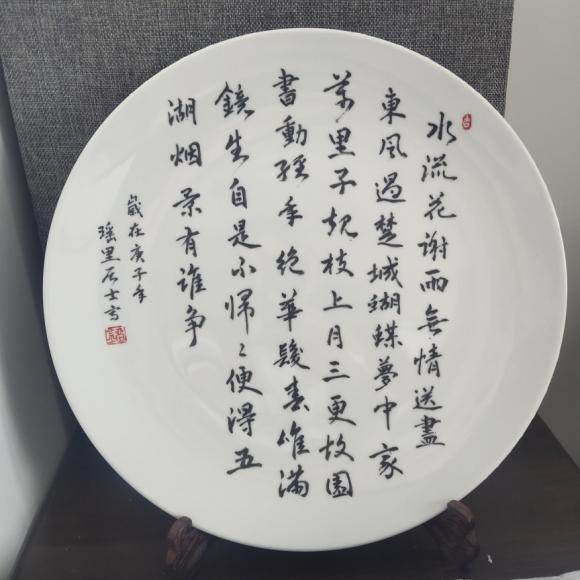 水流花謝兩無情送盡
東风過楚城蝴蝶夢中家
萬里子規枝上月三更故園
書動經年絕華髮春唯滿
鏡生自是不歸〻便得五
湖烟景有誰争
歲在庚子年
瑶里居士写